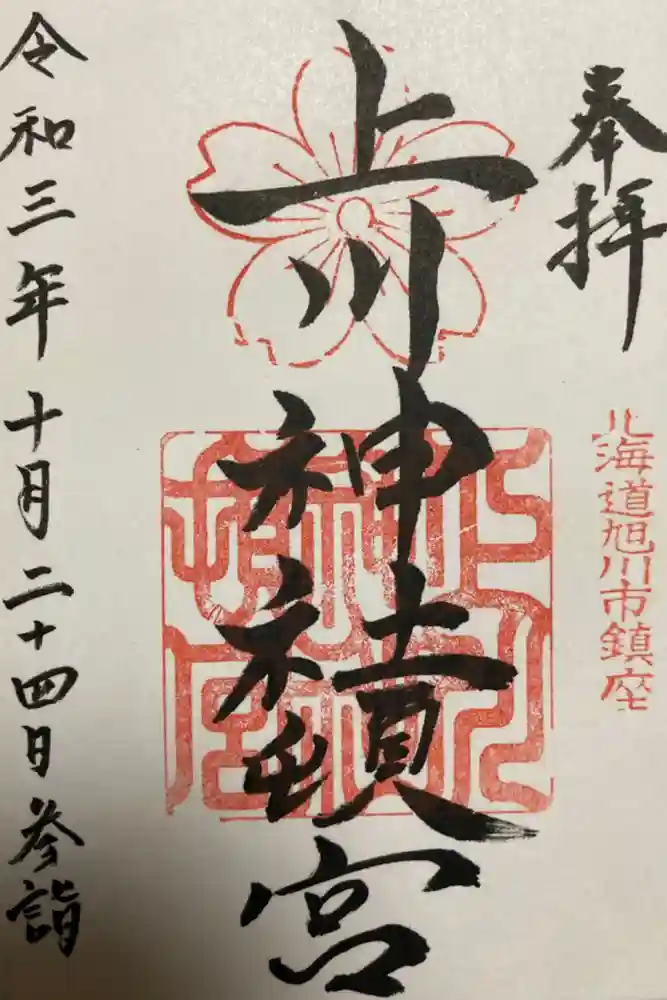 奉拝
北海道旭川市鎮座
上川神社頓宮
令和三年十月二十四日参詣